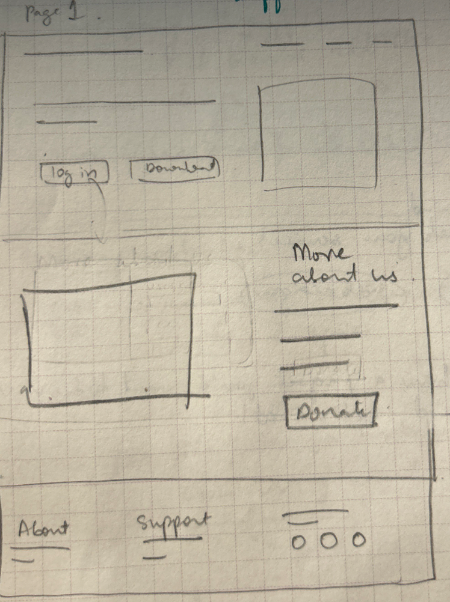 Page 1.
log in
Download
More
about us
Donate
About
Support